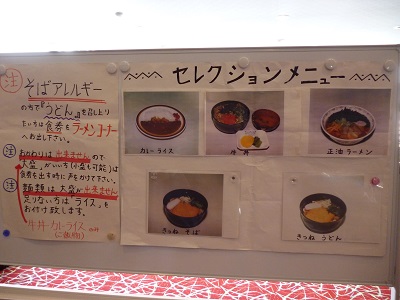 注 そばアレルギー
の方で『うどん』を召し上り
たい方は食券をラーメンコーナー
へお出し下さい。
注 おかわりは出来ませんので
大盛がいい方(小盛も可能)は
食券を出す時に声をかけて下さい。
注 麺類は大盛が出来ません
足りない方は"ライス"を
お付け致します。
牛丼・カレーライス
〜セレクションメニュー〜
カレーライス
牛丼
正油ラーメン
きつね そば
きつね うどん